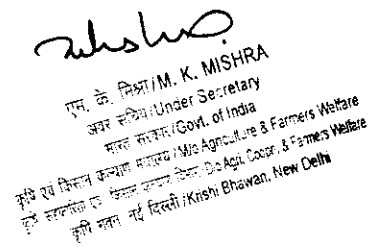 एम. के. मिश्रा/M. K. MISHRA
अवर सचिव/Under Secretary
भारत सरकार/Govt. of India
कृषि एवं किसान कल्याण मंत्रालय/M/o Agriculture & Farmers Welfare
कृषि सहकारिता एवं किसान कल्याण विभाग/D/o Agri. Coopn. & Farmers Welfare
कृषि भवन, नई दिल्ली/Krishi Bhawan, New Delhi